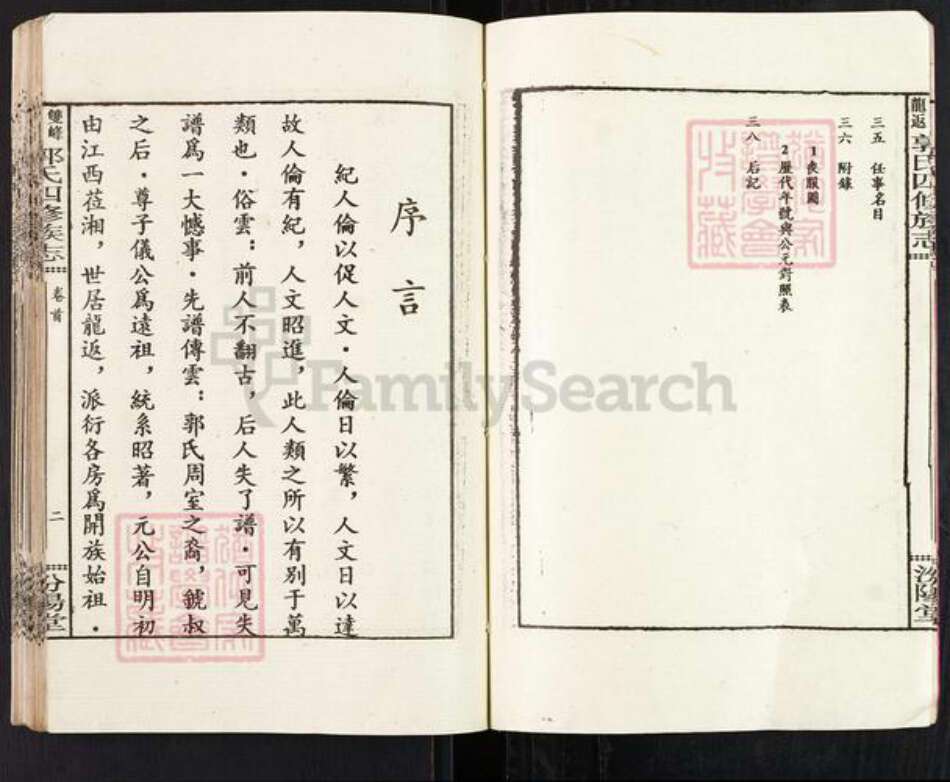 龍返 郭氏四修族志
三五 任事名目
三六 附錄
1 喪服圖
2 歷代年號與公元對照表
三八 后記
汾陽堂
序言
紀人倫以促人文·人倫日以繁，人文日以達
故人倫有紀，人文昭進，此人類之所以有别于萬
類也·俗雲：前人不翻古，后人失了譜·可見失
譜爲一大憾事·先譜傳雲：郭氏周室之裔，虢叔
之后·尊子儀公爲遠祖，統系昭著，元公自明初
由江西莅湘，世居龍返，派衍各房爲開族始祖·
雙峰 郭氏四修族志
卷首
二
汾陽堂
FamilySearch